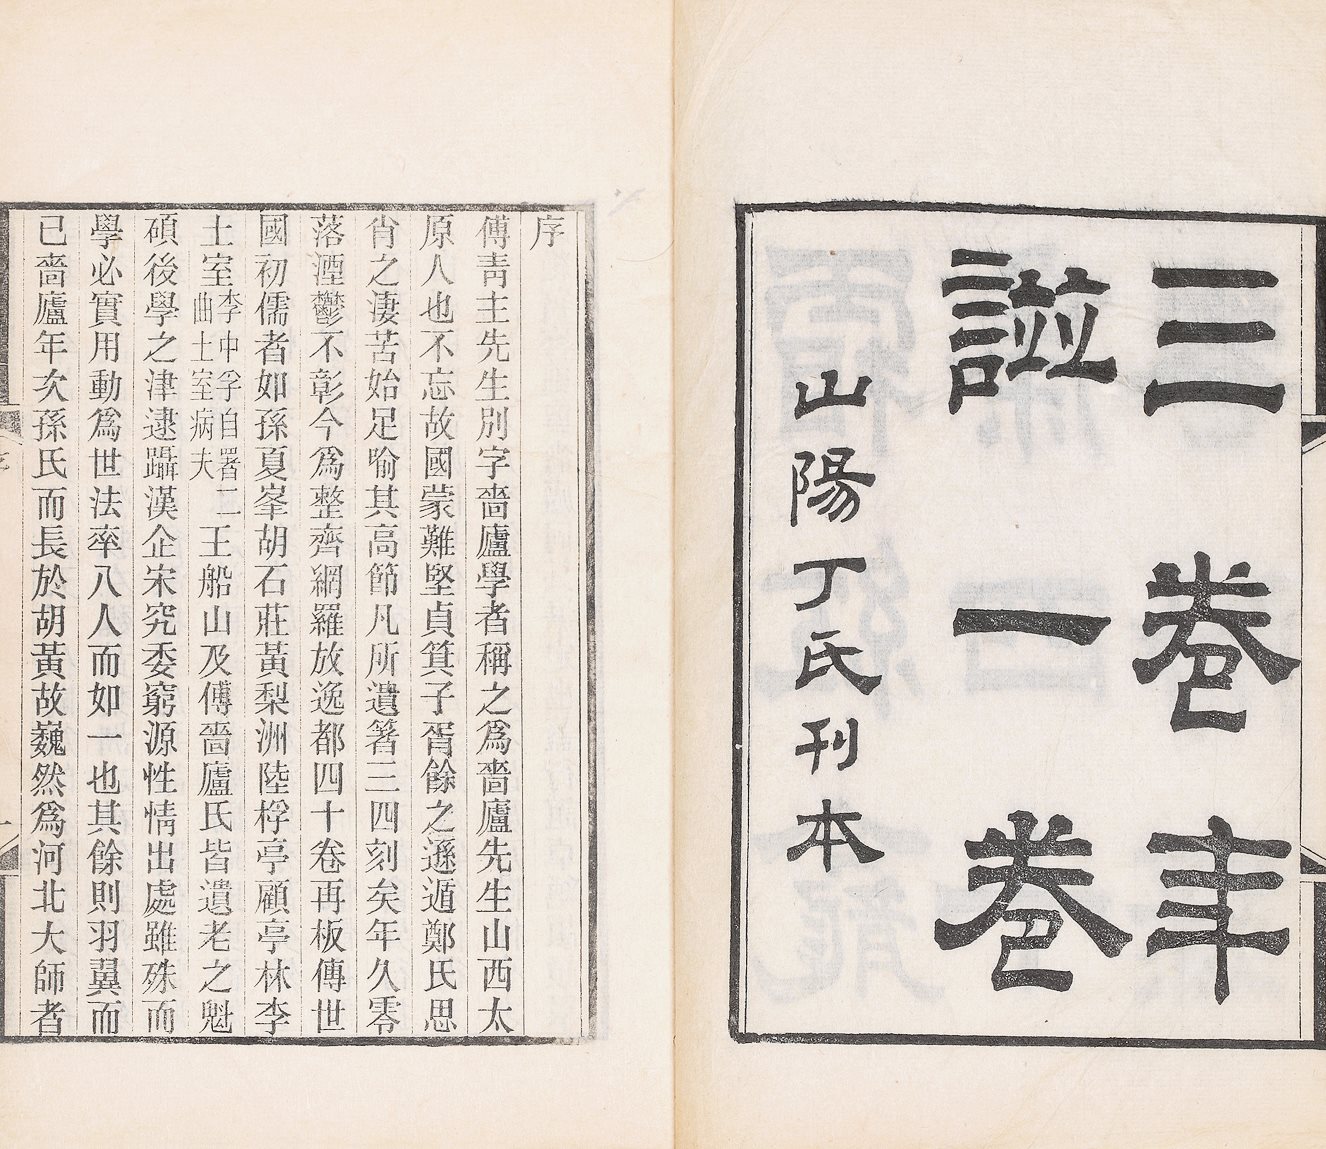 三卷年
譜一卷
山陽丁氏刊本
序
傅靑主先生別字嗇廬學者稱之爲嗇廬先生山西太
原人也不忘故國蒙難堅貞箕子胥餘之遜遁鄭氏思
肖之淒苦始足喻其高節凡所遺箸三四刻矣年久零
落湮鬱不彰今爲整齊網羅放逸都四十卷再板傳世
國初儒者如孫夏峯胡石莊黃梨洲陸桴亭顧亭林李
土室李中孚自署二曲土室病夫王船山及傅嗇廬氏皆遺老之魁
碩後學之津逮躡漢企宋究委窮源性情出處雖殊而
學必實用動爲世法率八人而如一也其餘則羽翼而
已嗇廬年次孫氏而長於胡黃故巍然爲河北大師者